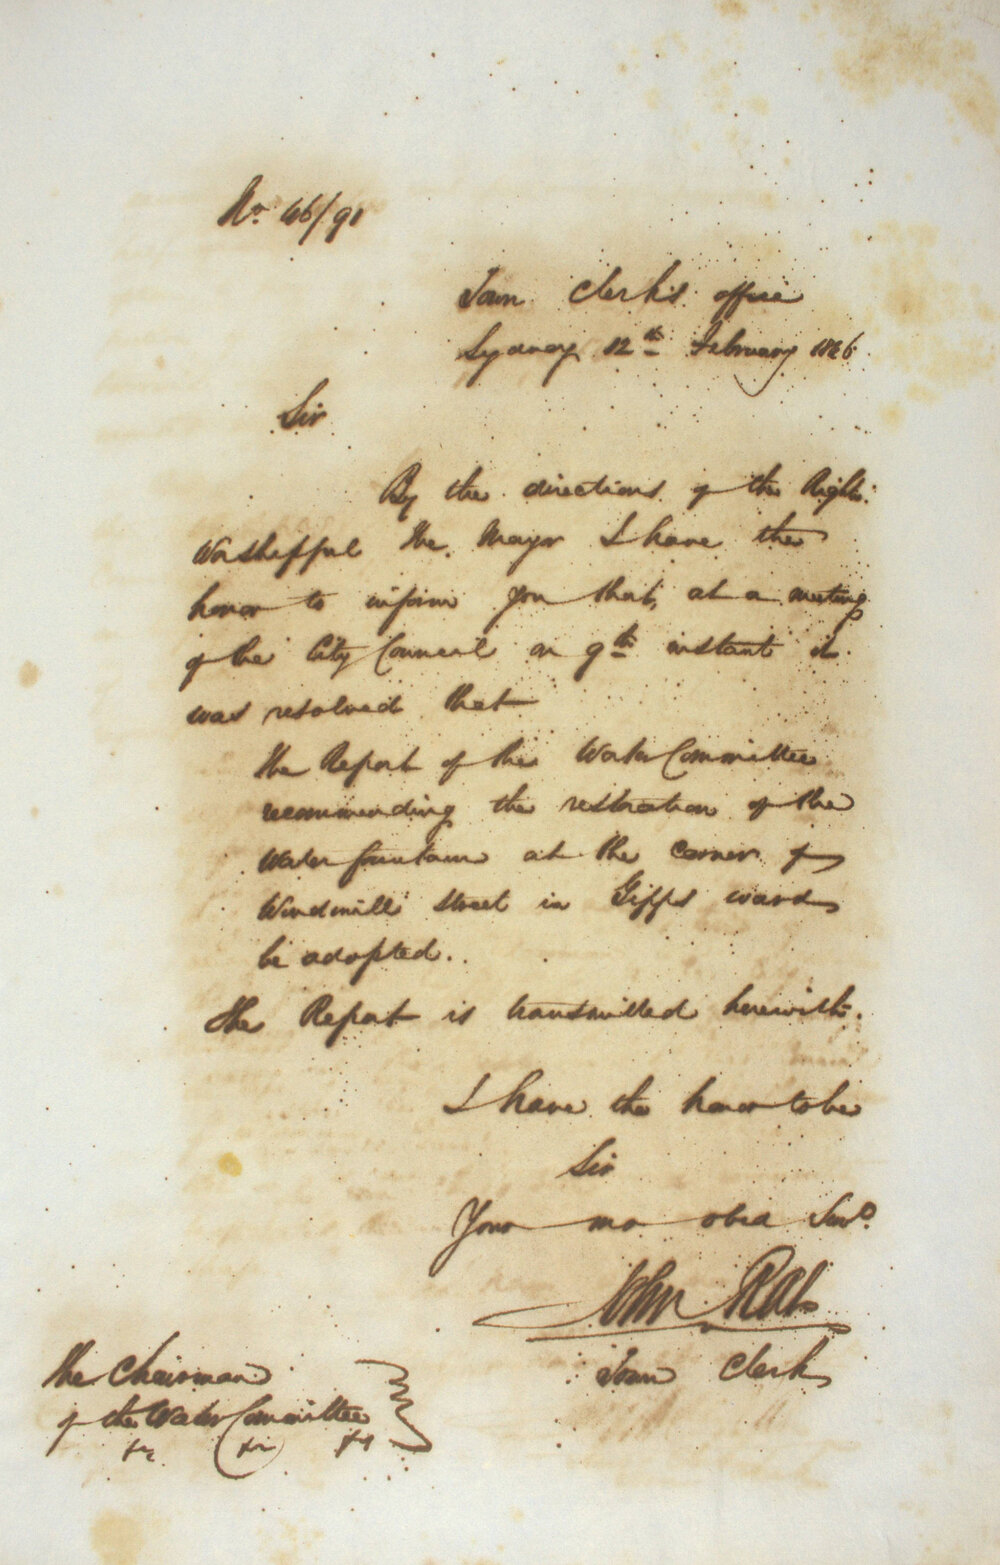 No. 46/91
Town Clerk's office
Sydney 12th February 1846
Sir
By the directions of the Right
Worshipful the Mayor I have the
honor to inform you that, at a meeting
of the City Council on 9th instant it
was resolved that
the Report of the Water Committee
recommending the restoration of the
Water fountain at the corner of
Windmill Street in Gipps ward
be adopted.
The Report is transmitted herewith.
I have the honor to be
Sir
Your mo obed Servt
John Rae
Town Clerk
The Chairman
of the Water Committee